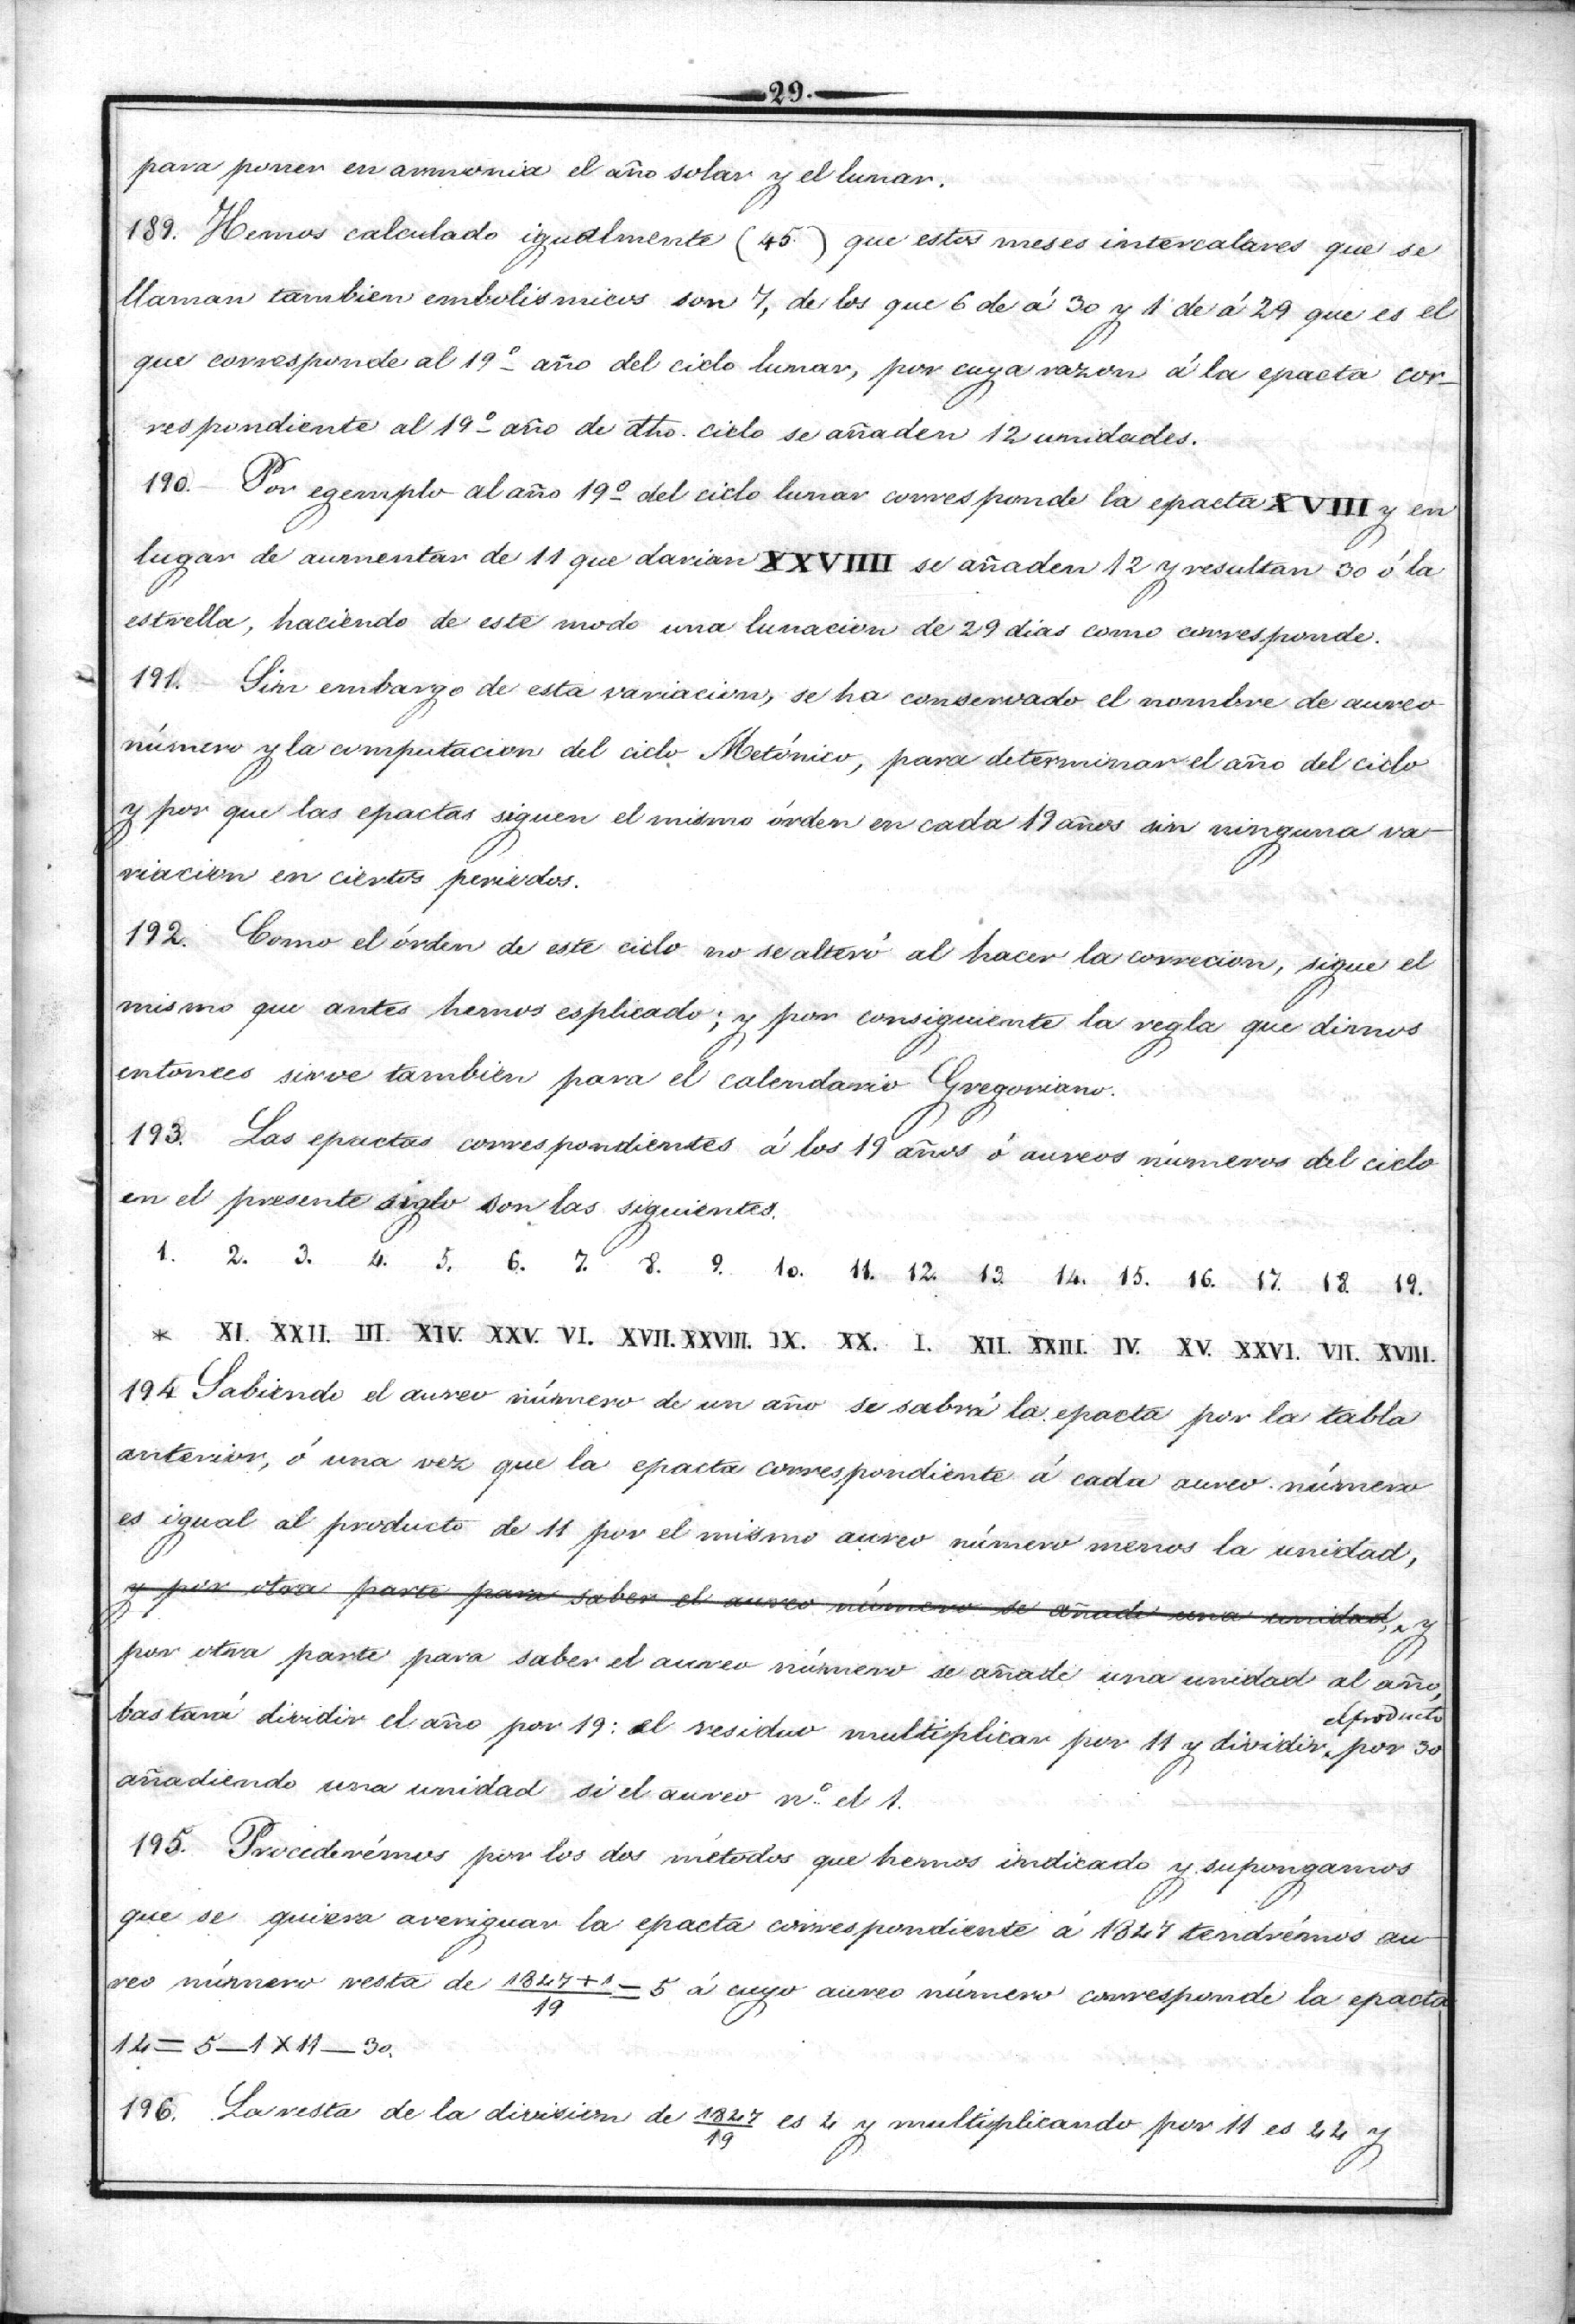 29.
para poner en armonia el año solar y el lunar.
189. Hemos calculado igualmente (45) que estos meses intercalares que se
llaman tambien embolismicos son 7, de los que 6 de á 30 y 1 de á 29 que es el
que corresponde al 19º año del ciclo lunar, por cuya razon á la epacta cor-
respondiente al 19º año de dho. ciclo se añaden 12 unidades.
190. Por egemplo al año 19º del ciclo lunar corresponde la epacta XVIII y en
lugar de aumentar de 11 que darian XXVIIII se añaden 12 y resultan 30 ó la
estrella, haciendo de este modo una lunacion de 29 dias como corresponde.
191. Sin embargo de esta variacion, se ha conservado el nombre de aureo
número y la computacion del ciclo Metónico, para determinar el año del ciclo
y por que las epactas siguen el mismo órden en cada 19 años sin ninguna va-
riacion en ciertos periodos.
192. Como el órden de este ciclo no se alteró al hacer la correcion, sigue el
mismo que antes hemos esplicado; y por consiguiente la regla que dimos
entonces sirve tambien para el calendario Gregoriano.
193. Las epactas correspondientes á los 19 años ó aureos números del ciclo
en el presente siglo son las siguientes.
1. 2. 3. 4. 5. 6. 7. 8. 9. 10. 11. 12. 13. 14. 15. 16. 17. 18. 19.
* XI. XXII. III. XIV. XXV. VI. XVII. XXVIII. IX. XX. I. XII. XXIII. IV. XV. XXVI. VII. XVIII.
194. Sabiendo el aureo número de un año se sabrá la epacta por la tabla
anterior, ó una vez que la epacta correspondiente á cada aureo número
es igual al producto de 11 por el mismo aureo número menos la unidad,
y por otra parte para saber el aureo número se añade una unidad, y
por otra parte para saber el aureo número se añade una unidad al año,
bastará dividir el año por 19: el residuo multiplicar por 11 y dividir el producto por 30
añadiendo una unidad si el aureo nº el 1.
195. Procederémos por los dos métodos que hemos indicado y supongamos
que se quiera averiguar la epacta correspondiente á 1827 tendrémos au-
reo número resta de 1827+1/19 = 5 á cuyo aureo número corresponde la epacta
14 = 5—1 X 11—30.
196. La resta de la division de 1827/19 es 4 y multiplicando por 11 es 44 y